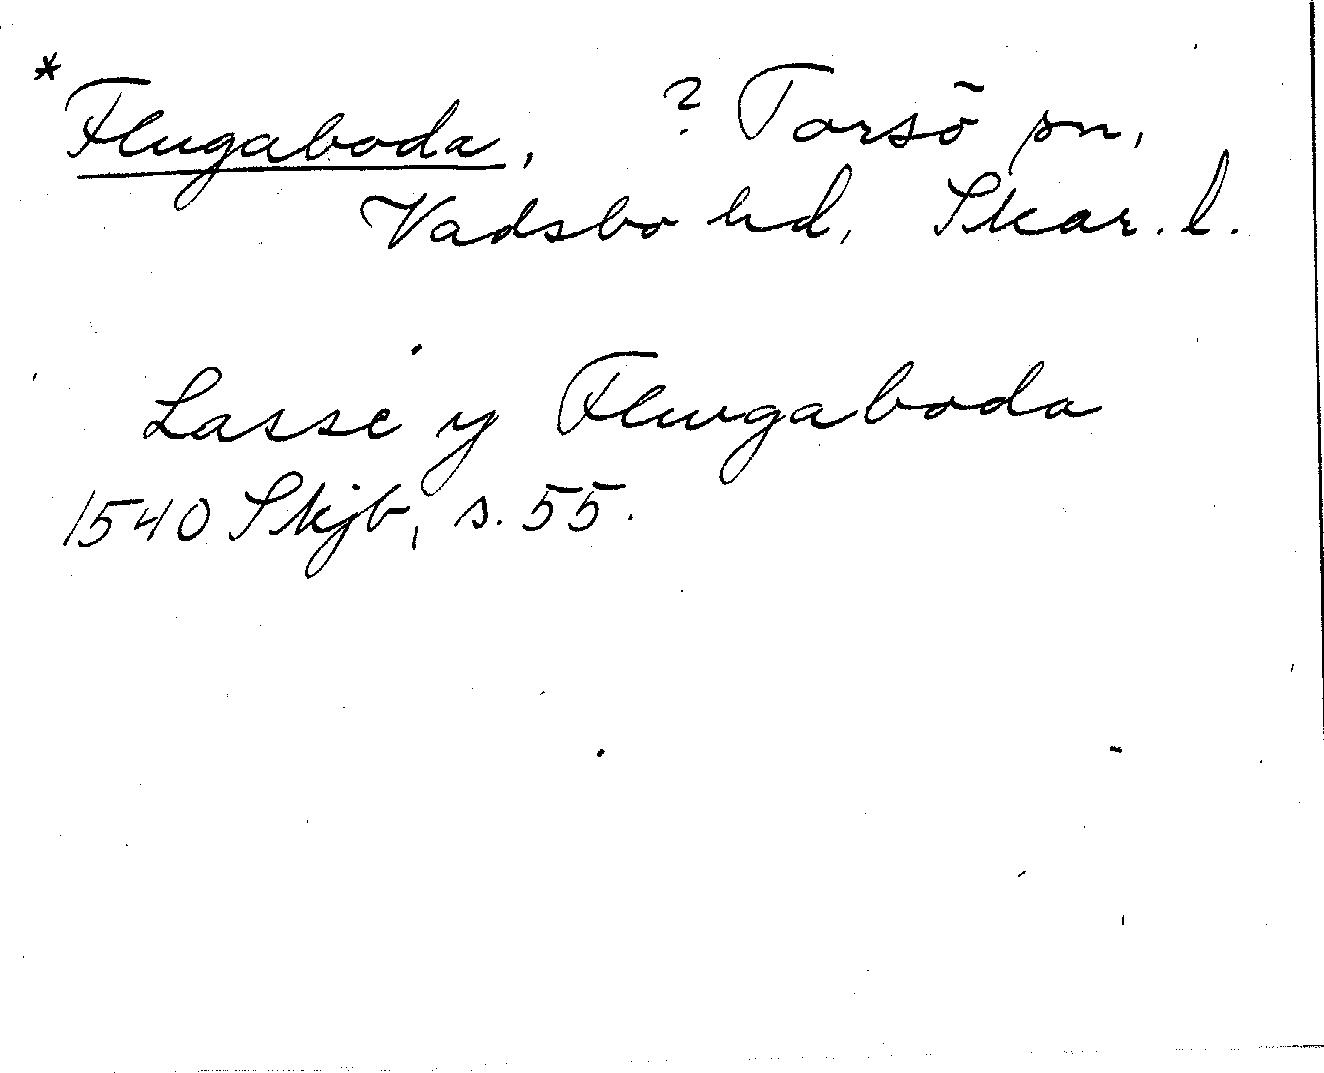 * Flugaboda, ? Torsö sn,
Vadsbo hd, Skar. l.
Lasse y Flugaboda
1540 Skjb, s. 55.